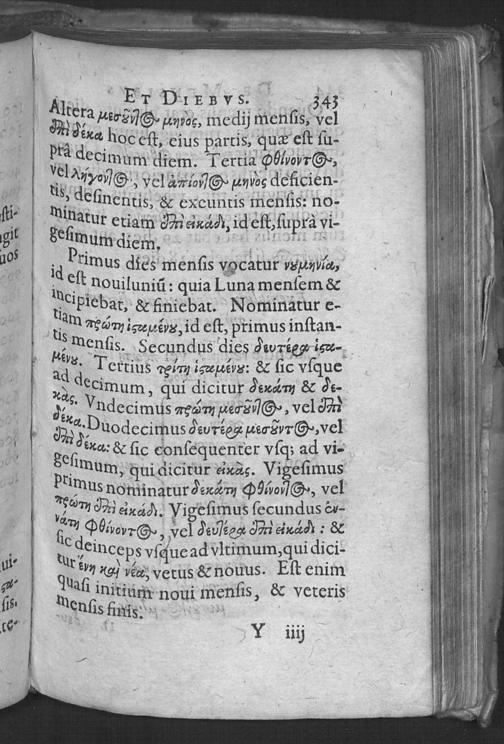 ET DIEBVS. 343
Altera μεσοῦντος μηνος, medij mensis, vel
ἐπὶ δέκα hoc est, eius partis, quæ est su-
prà decimum diem. Tertia φθίνοντος,
vel λήγοντος, vel απίοντος μηνὸς deficien-
tis, desinentis, & exeuntis mensis: no-
minatur etiam ἐπὶ εικάδι, id est, suprà vi-
gesimum diem.
Primus dies mensis vocatur νυμηνία,
id est nouiluniũ: quia Luna mensem &
incipiebat, & finiebat. Nominatur e-
tiam πρώτη ἱσαμένυ, id est, primus instan-
tis mensis. Secundus dies δευτέρα ἱσα-
μένυ. Tertius τρίτη ἱσαμένυ: & sic vsque
ad decimum, qui dicitur δεκάτη & δε-
κὰς. Vndecimus πρώτη μεσοῦντος, vel ἐπὶ
δέκα. Duodecimus δευτέρα μεσοῦντος, vel
ἐπὶ δέκα: & sic consequenter vsq; ad vi-
gesimum, qui dicitur εικὰς. Vigesimus
primus nominatur δεκάτη φθίνοντος, vel
πρώτη ἐπὶ εικάδι. Vigesimus secundus ἐν-
νάτη φθίνοντος, vel δευτέρα ἐπὶ εικάδι: &
sic deinceps vsque ad vltimum, qui dici-
tur ἕνη καὶ νέα, vetus & nouus. Est enim
quasi initium noui mensis, & veteris
mensis finis.
Y iiij